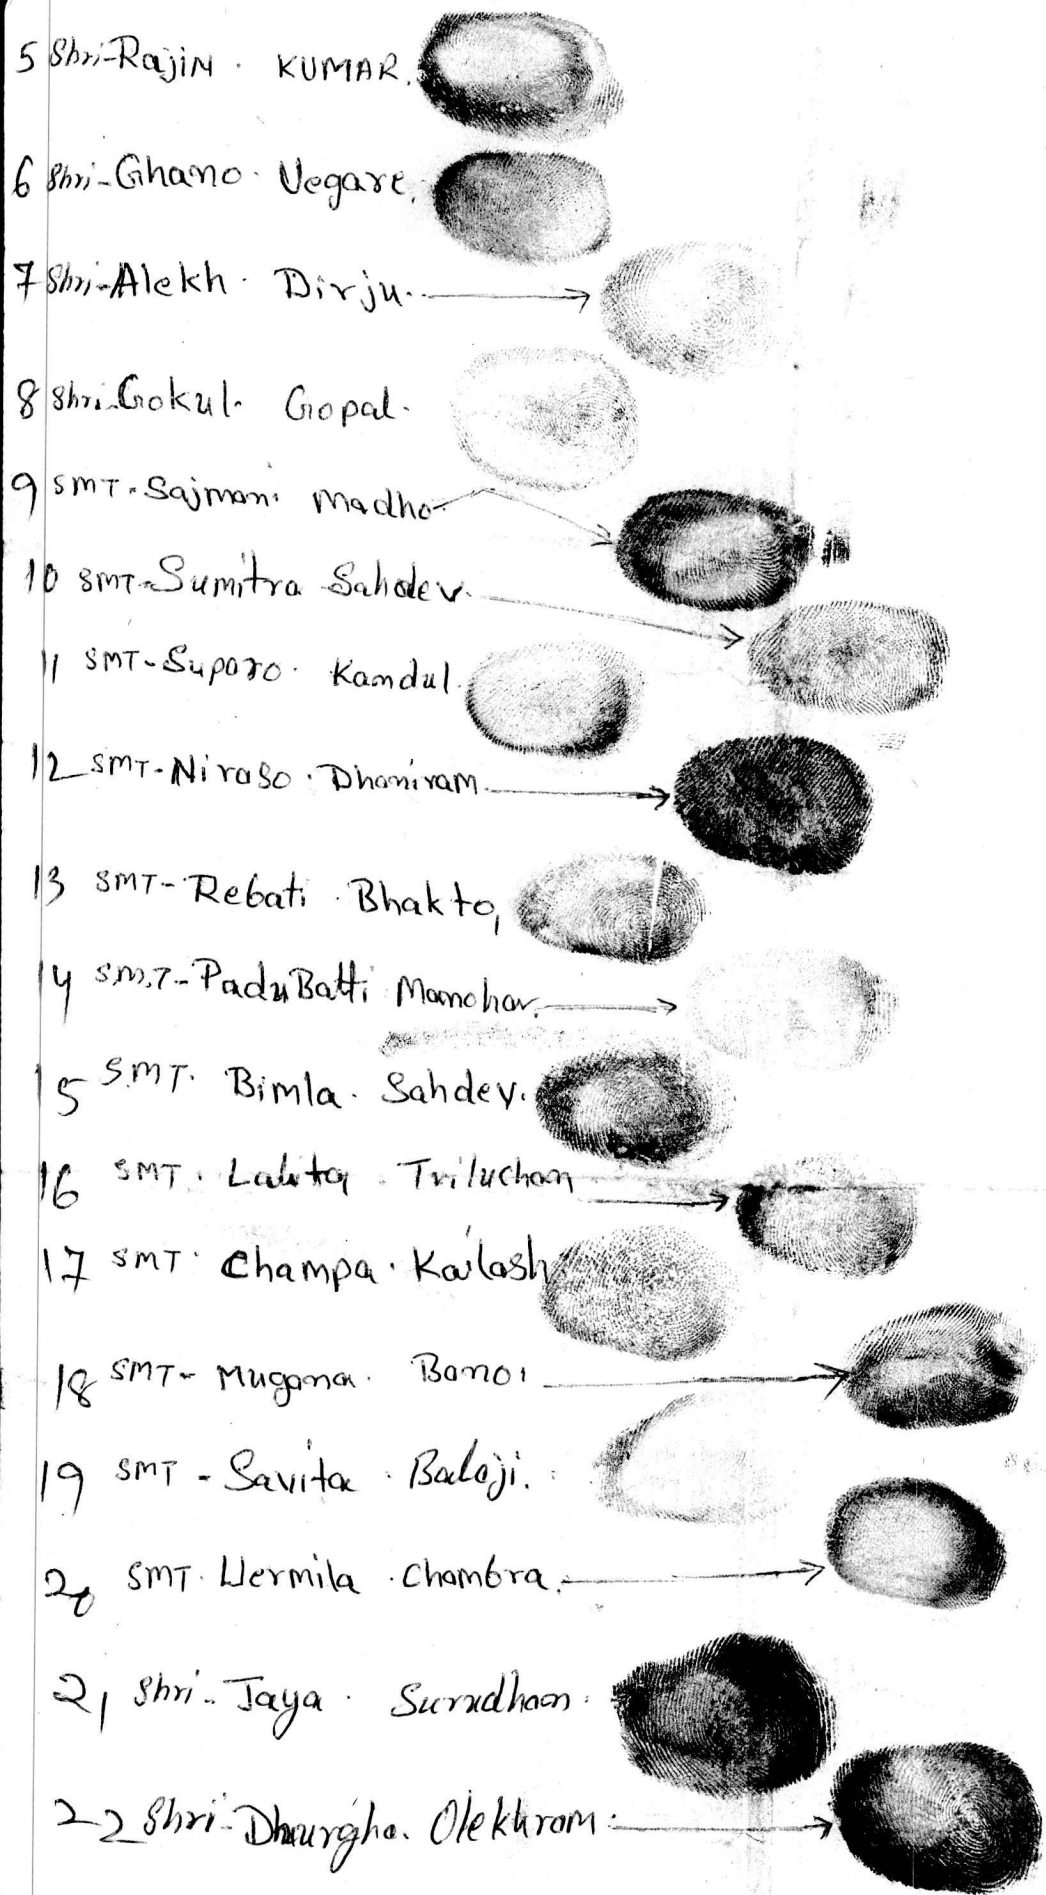 5 Shri-Rajin . KUMAR.
6 Shri-Ghano . Vegare.
7 Shri-Alekh . Dirju.
8 Shri-Gokul. Gopal.
9 SMT. Sajmani Madho
10 SMT-Sumitra Sahdev.
11 SMT-Suporo . Kandul.
12 SMT-Niraso . Dhaniram.
13 SMT-Rebati . Bhakto,
14 S.M.T-PaduBatti Manohar.
15 S.M.T. Bimla . Sahdev.
16 SMT . Lalita . Triluchan
17 SMT . Champa . Kailash
18 SMT- Mugana . Bano
19 SMT - Savita . Balaji.
20 SMT . Uermila . Chambra.
21 Shri- Jaya . Surudhan.
22 Shri- Dhaurgha. Olekhram.